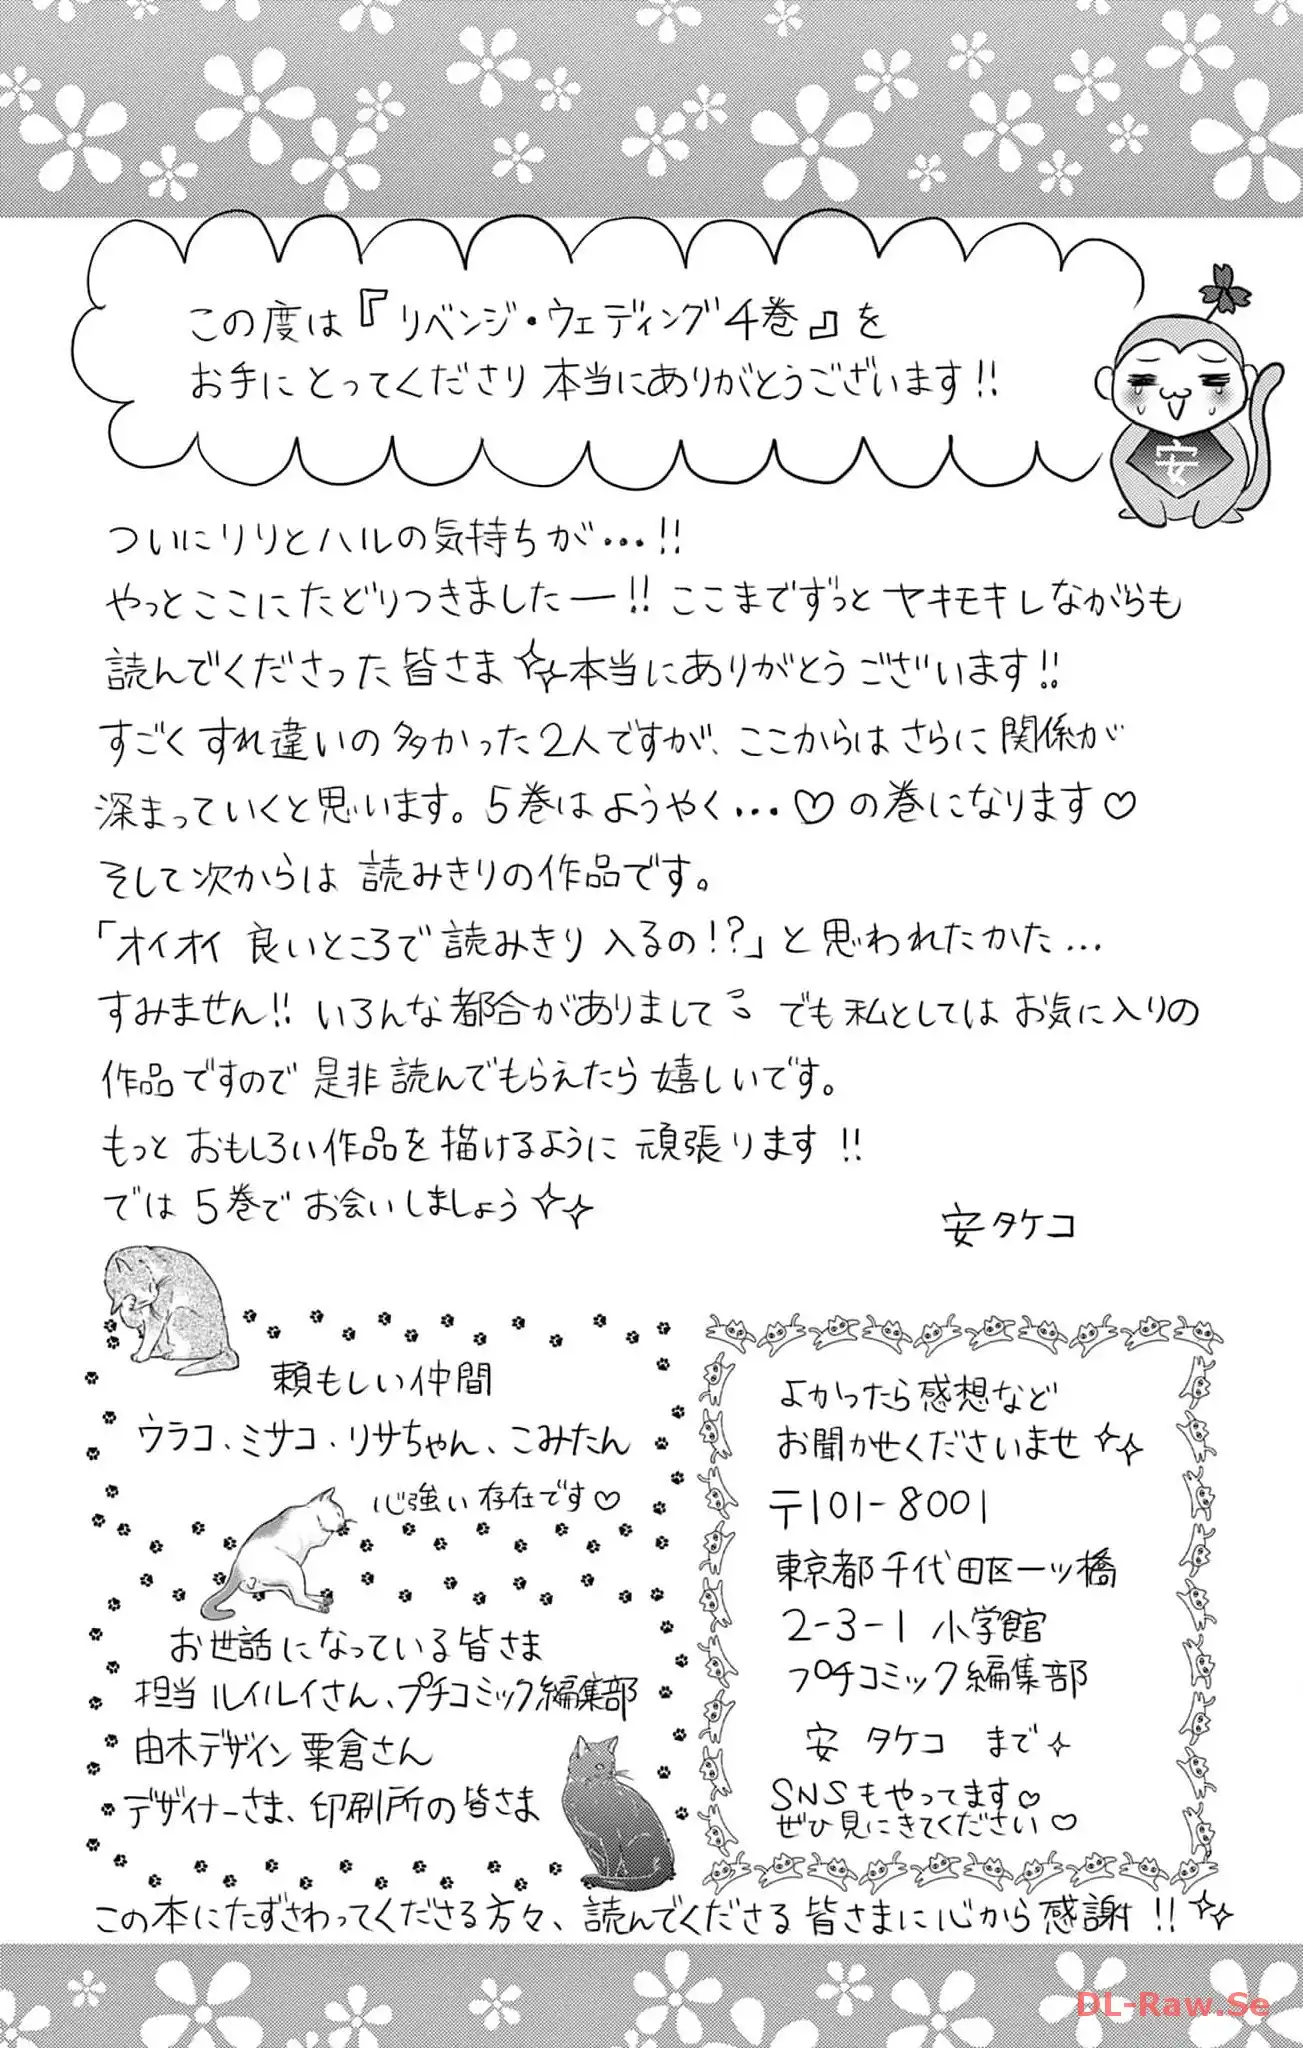 この度は『リベンジ・ウェディング4巻』を
お手にとってくださり 本当にありがとうございます!!
安
ついにリリとハルの気持ちが…!!
やっとここにたどりつきましたー!! ここまでずっとヤキモキしながらも
読んでくださった皆さま 本当にありがとうございます!!
すごくすれ違いの多かった2人ですが、ここからはさらに関係が
深まっていくと思います。5巻はようやく…♡の巻になります♡
そして次からは 読みきりの作品です。
「オイオイ 良いところで 読みきり入るの!?」と思われたかた…
すみません!! いろんな都合がありまして でも私としてはお気に入りの
作品ですので 是非読んでもらえたら嬉しいです。
もっと おもしろい作品を描けるように 頑張ります!!
では 5巻で お会いしましょう
安タケコ
頼もしい仲間
ウラコ、ミサコ、リサちゃん、こみたん
心強い存在です♡
お世話になっている皆さま
担当 ルイルイさん、プチコミック編集部
由木デザイン 粟倉さん
デザイナーさま、印刷所の皆さま
よかったら感想など
お聞かせくださいませ
〒101-8001
東京都千代田区一ツ橋
2-3-1 小学館
プチコミック編集部
安 タケコ まで
SNSもやってます♡
ぜひ見にきてください♡
この本にたずさわってくださる方々、読んでくださる皆さまに心から感謝!!
DL-Raw.Se